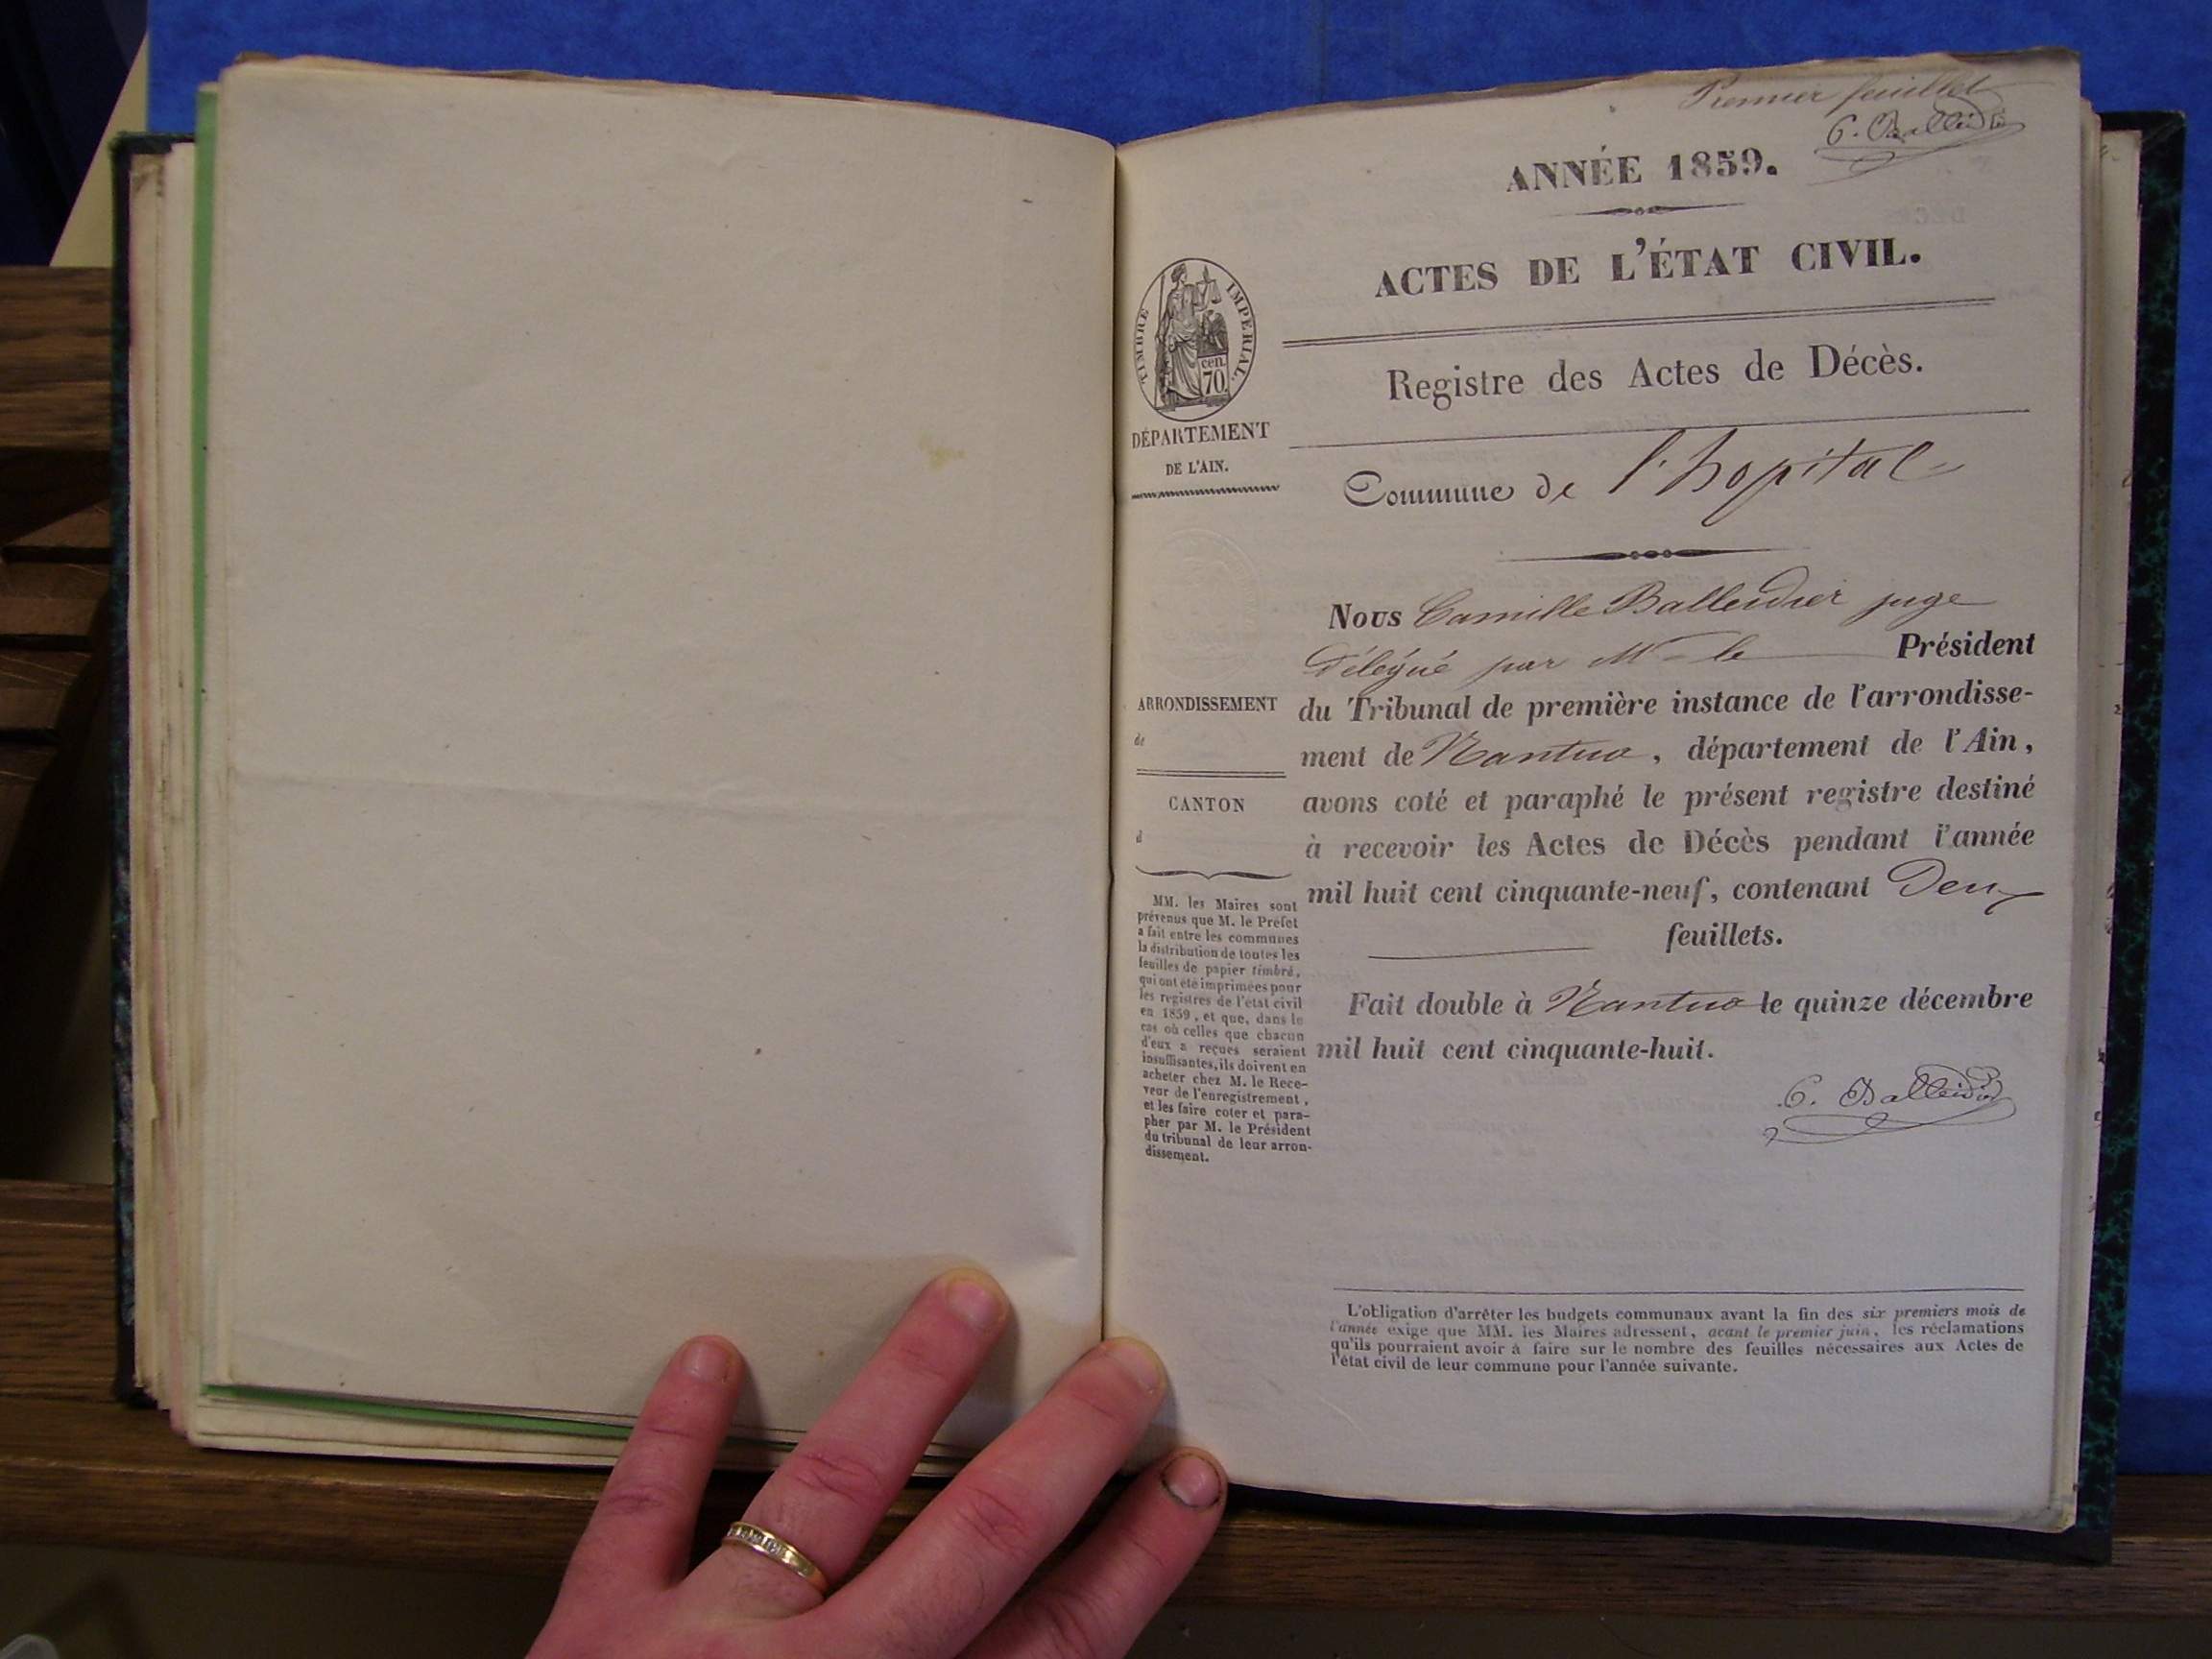 Premier feuillet
C. Balleidier
ANNÉE 1859.
ACTES DE L'ÉTAT CIVIL.
TIMBRE IMPÉRIAL.
cen.
70
Registre des Actes de Décès.
DÉPARTEMENT
DE L'AIN.
Commune de l'hopital
Nous Camille Balleidier juge
Délégué par Mr le Président
du Tribunal de première instance de l'arrondisse-
ment de Nantua, département de l'Ain,
avons coté et paraphé le présent registre destiné
à recevoir les Actes de Décès pendant l'année
mil huit cent cinquante-neuf, contenant Deux
feuillets.
Fait double à Nantua le quinze décembre
mil huit cent cinquante-huit.
C. Balleidier
ARRONDISSEMENT
de
CANTON
d
MM. les Maires sont
prévenus que M. le Préfet
a fait entre les communes
la distribution de toutes les
feuilles de papier timbré,
qui ont été imprimées pour
les registres de l'état civil
en 1859, et que, dans le
cas où celles que chacun
d'eux a reçues seraient
insuffisantes, ils doivent en
acheter chez M. le Rece-
veur de l'enregistrement,
et les faire coter et para-
pher par M. le Président
du tribunal de leur arron-
dissement.
L'obligation d'arrêter les budgets communaux avant la fin des six premiers mois de
l'année exige que MM. les Maires adressent, avant le premier juin, les réclamations
qu'ils pourraient avoir à faire sur le nombre des feuilles nécessaires aux Actes de
l'état civil de leur commune pour l'année suivante.